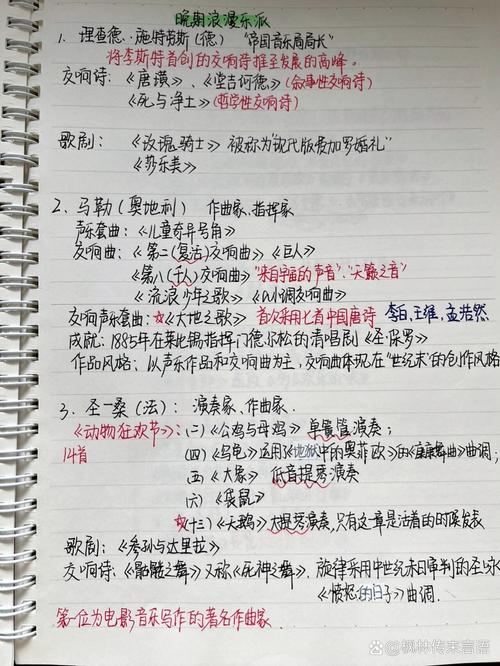 晚期浪漫乐派
1. 理查德·施特劳斯(德) "帝国音乐局局长"
将李斯特首创的交响诗推至发展的高峰。
交响诗: 《唐璜》、《堂吉诃德》(叙事性交响诗)
《死与净土》(哲学性交响诗)
歌剧: 《玫瑰骑士》 被称为"现代版费加罗婚礼"
《莎乐美》
2. 马勒(奥地利) 作曲家、指挥家
声乐套曲:《儿童奇异号角》
交响曲:《第二(复活)交响曲》《巨人》
《第八(千人)交响曲》"来自宇宙的声音"、"天籁之音"
《流浪少年之歌》《a小调交响曲》
交响声乐套曲: ☆《大地之歌》 首次采用七首中国唐诗 李白,王维,孟浩然
成就: 1885年在莱比锡指挥门德尔松的清唱剧《圣·保罗》
作品风格: 以声乐作品和交响曲为主,交响曲体现在"世纪末"的创作风格
3. 圣-桑(法): 演奏家、作曲家.
《动物狂欢节》: (二)《公鸡与母鸡》 单簧管演奏;
14首 (四)《乌龟》运用《地狱中的奥菲欧》的《康康舞曲》曲调;
(五)《大象》 低音提琴演奏
(六)《袋鼠》
☆(十三)《天鹅》大提琴演奏,只有这章是活着的时候发表
歌剧:《参孙与达里拉》
交响诗:《骷髅之舞》又称《死神之舞》. 旋律采用中世纪末日审判的圣咏
《愤怒的日子》曲调.
第一位为电影音乐写作的著名作曲家.
枫林传来言语